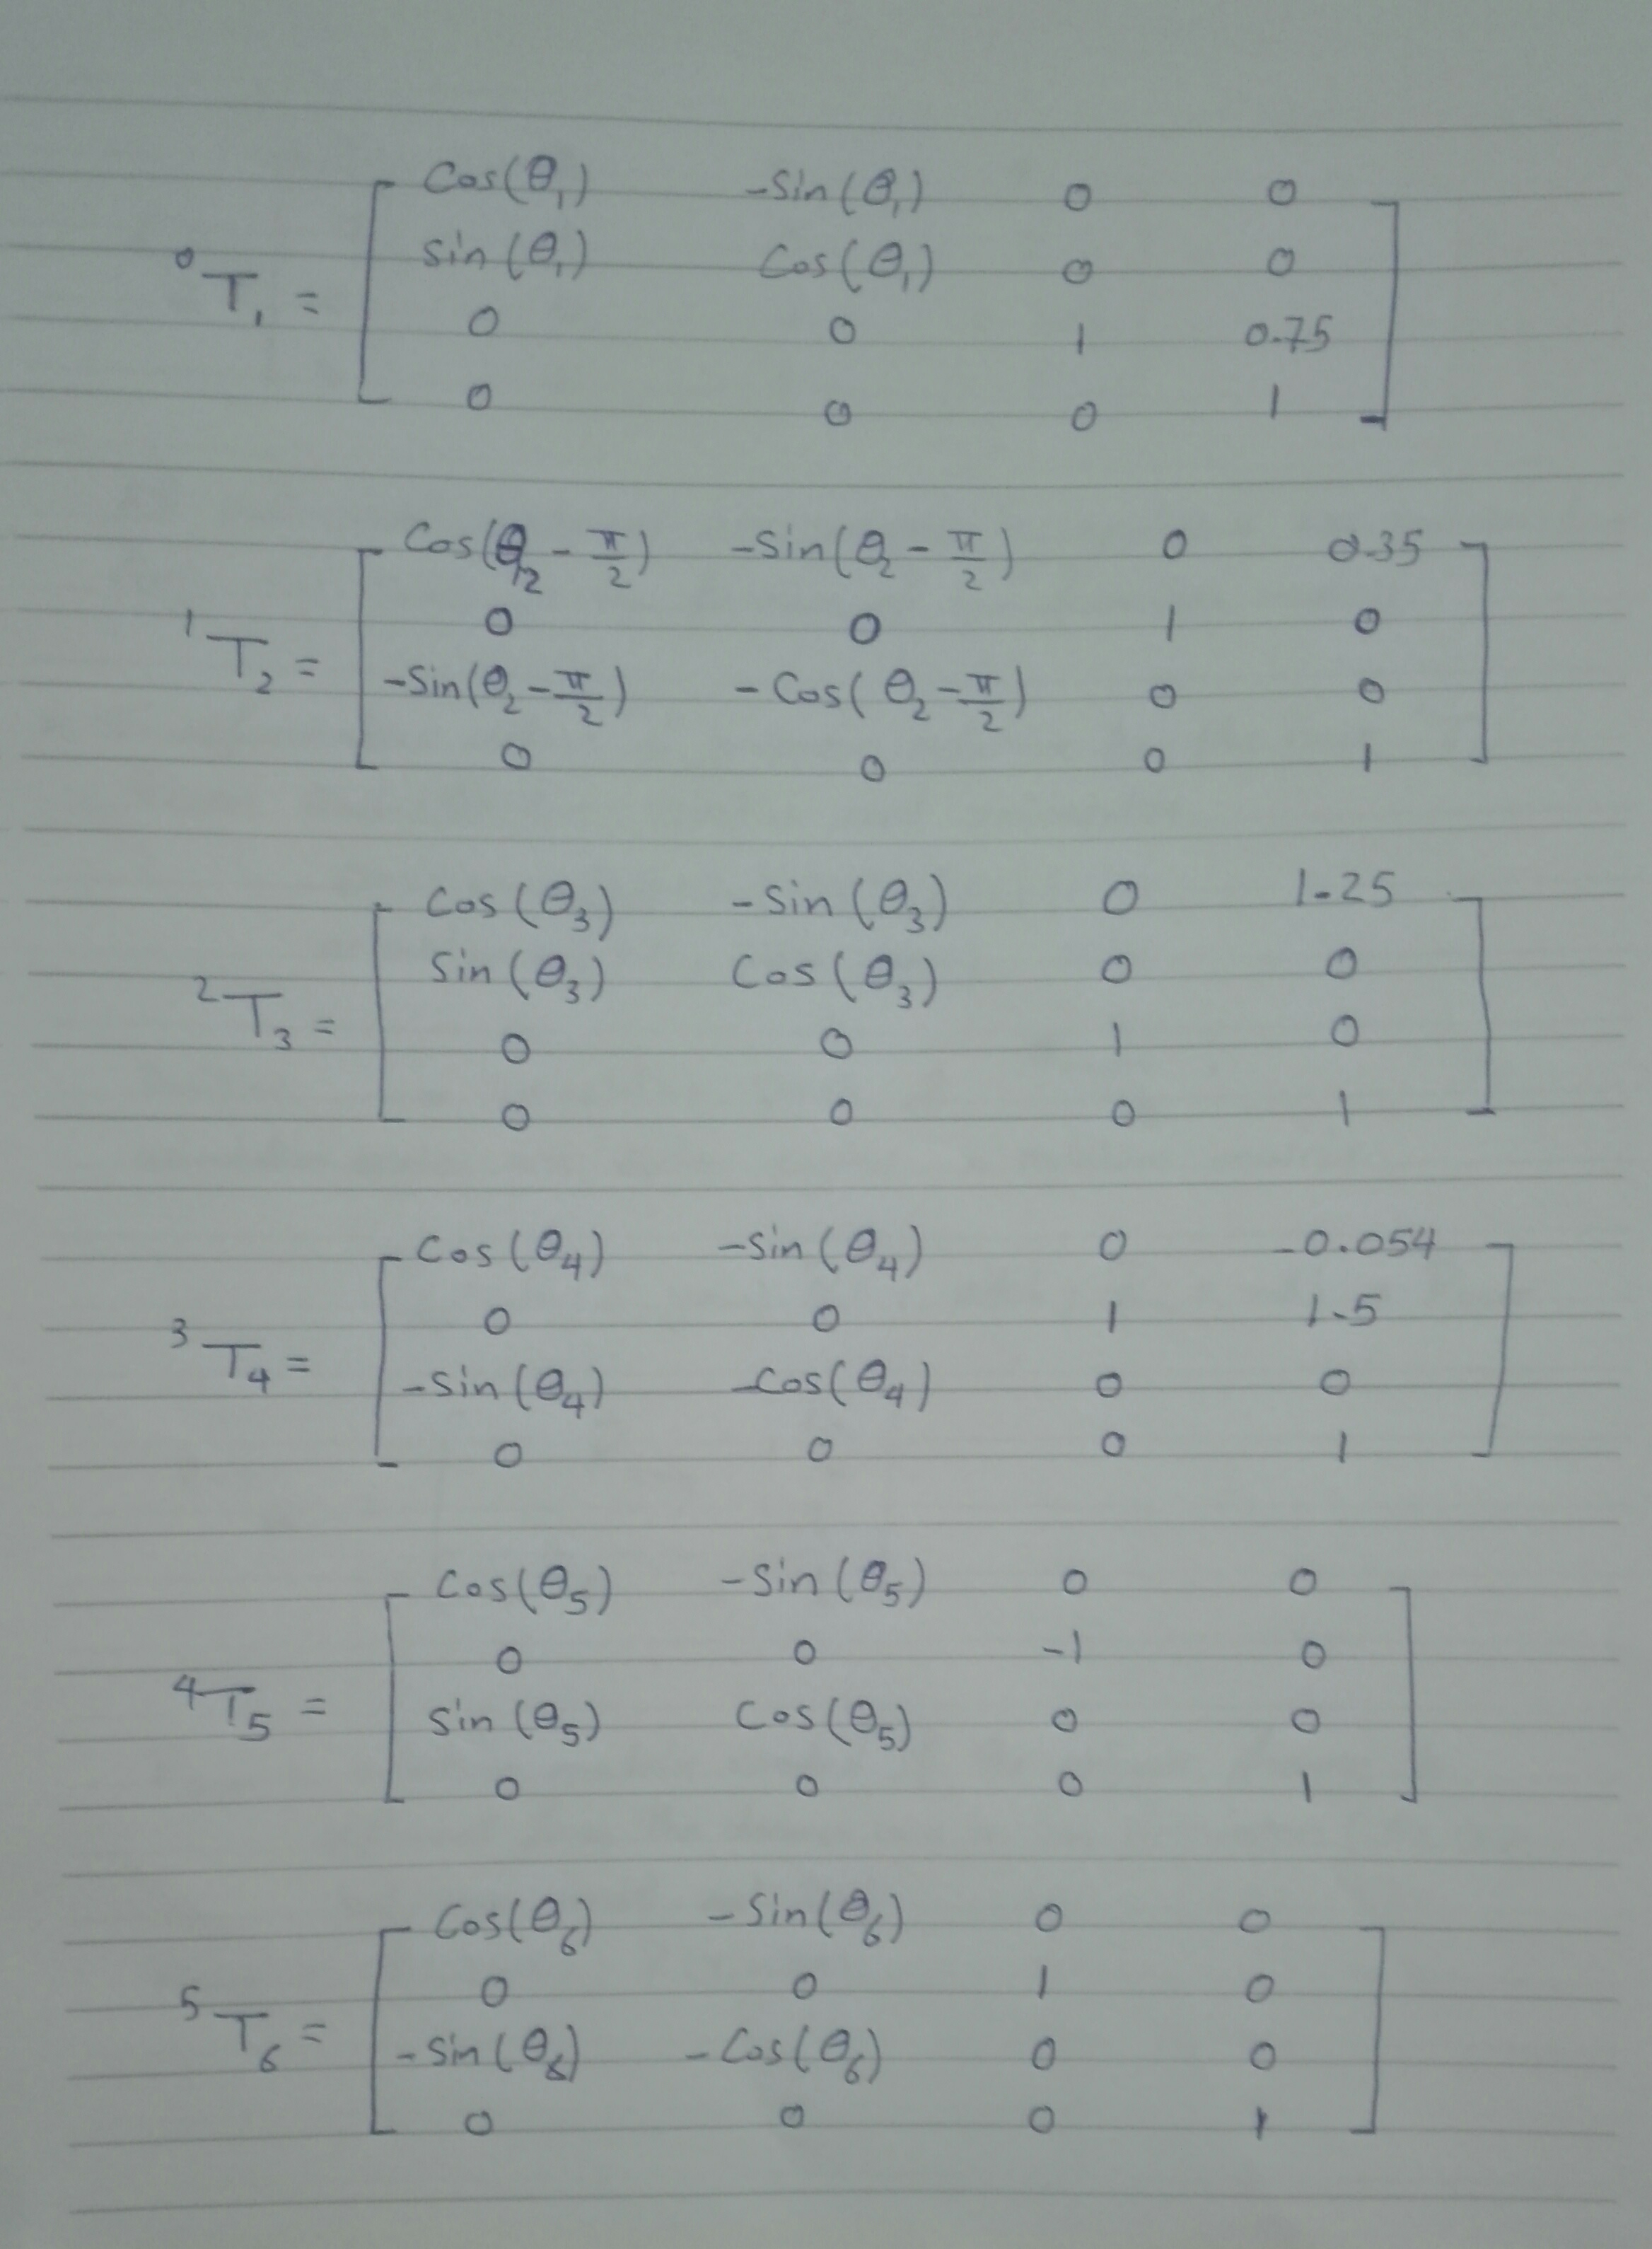 Cos(θ₁) -Sin(θ₁) 0 0
⁰T₁ = Sin(θ₁) Cos(θ₁) 0 0
0 0 1 0.75
0 0 0 1
Cos(θ₂ - π/2) -Sin(θ₂ - π/2) 0 0.35
¹T₂ = 0 0 1 0
-Sin(θ₂ - π/2) -Cos(θ₂ - π/2) 0 0
0 0 0 1
Cos(θ₃) -Sin(θ₃) 0 1.25
²T₃ = Sin(θ₃) Cos(θ₃) 0 0
0 0 1 0
0 0 0 1
Cos(θ₄) -Sin(θ₄) 0 -0.054
³T₄ = 0 0 1 1.5
-Sin(θ₄) -Cos(θ₄) 0 0
0 0 0 1
Cos(θ₅) -Sin(θ₅) 0 0
⁴T₅ = 0 0 -1 0
Sin(θ₅) Cos(θ₅) 0 0
0 0 0 1
Cos(θ₆) -Sin(θ₆) 0 0
⁵T₆ = 0 0 1 0
-Sin(θ₆) -Cos(θ₆) 0 0
0 0 0 1